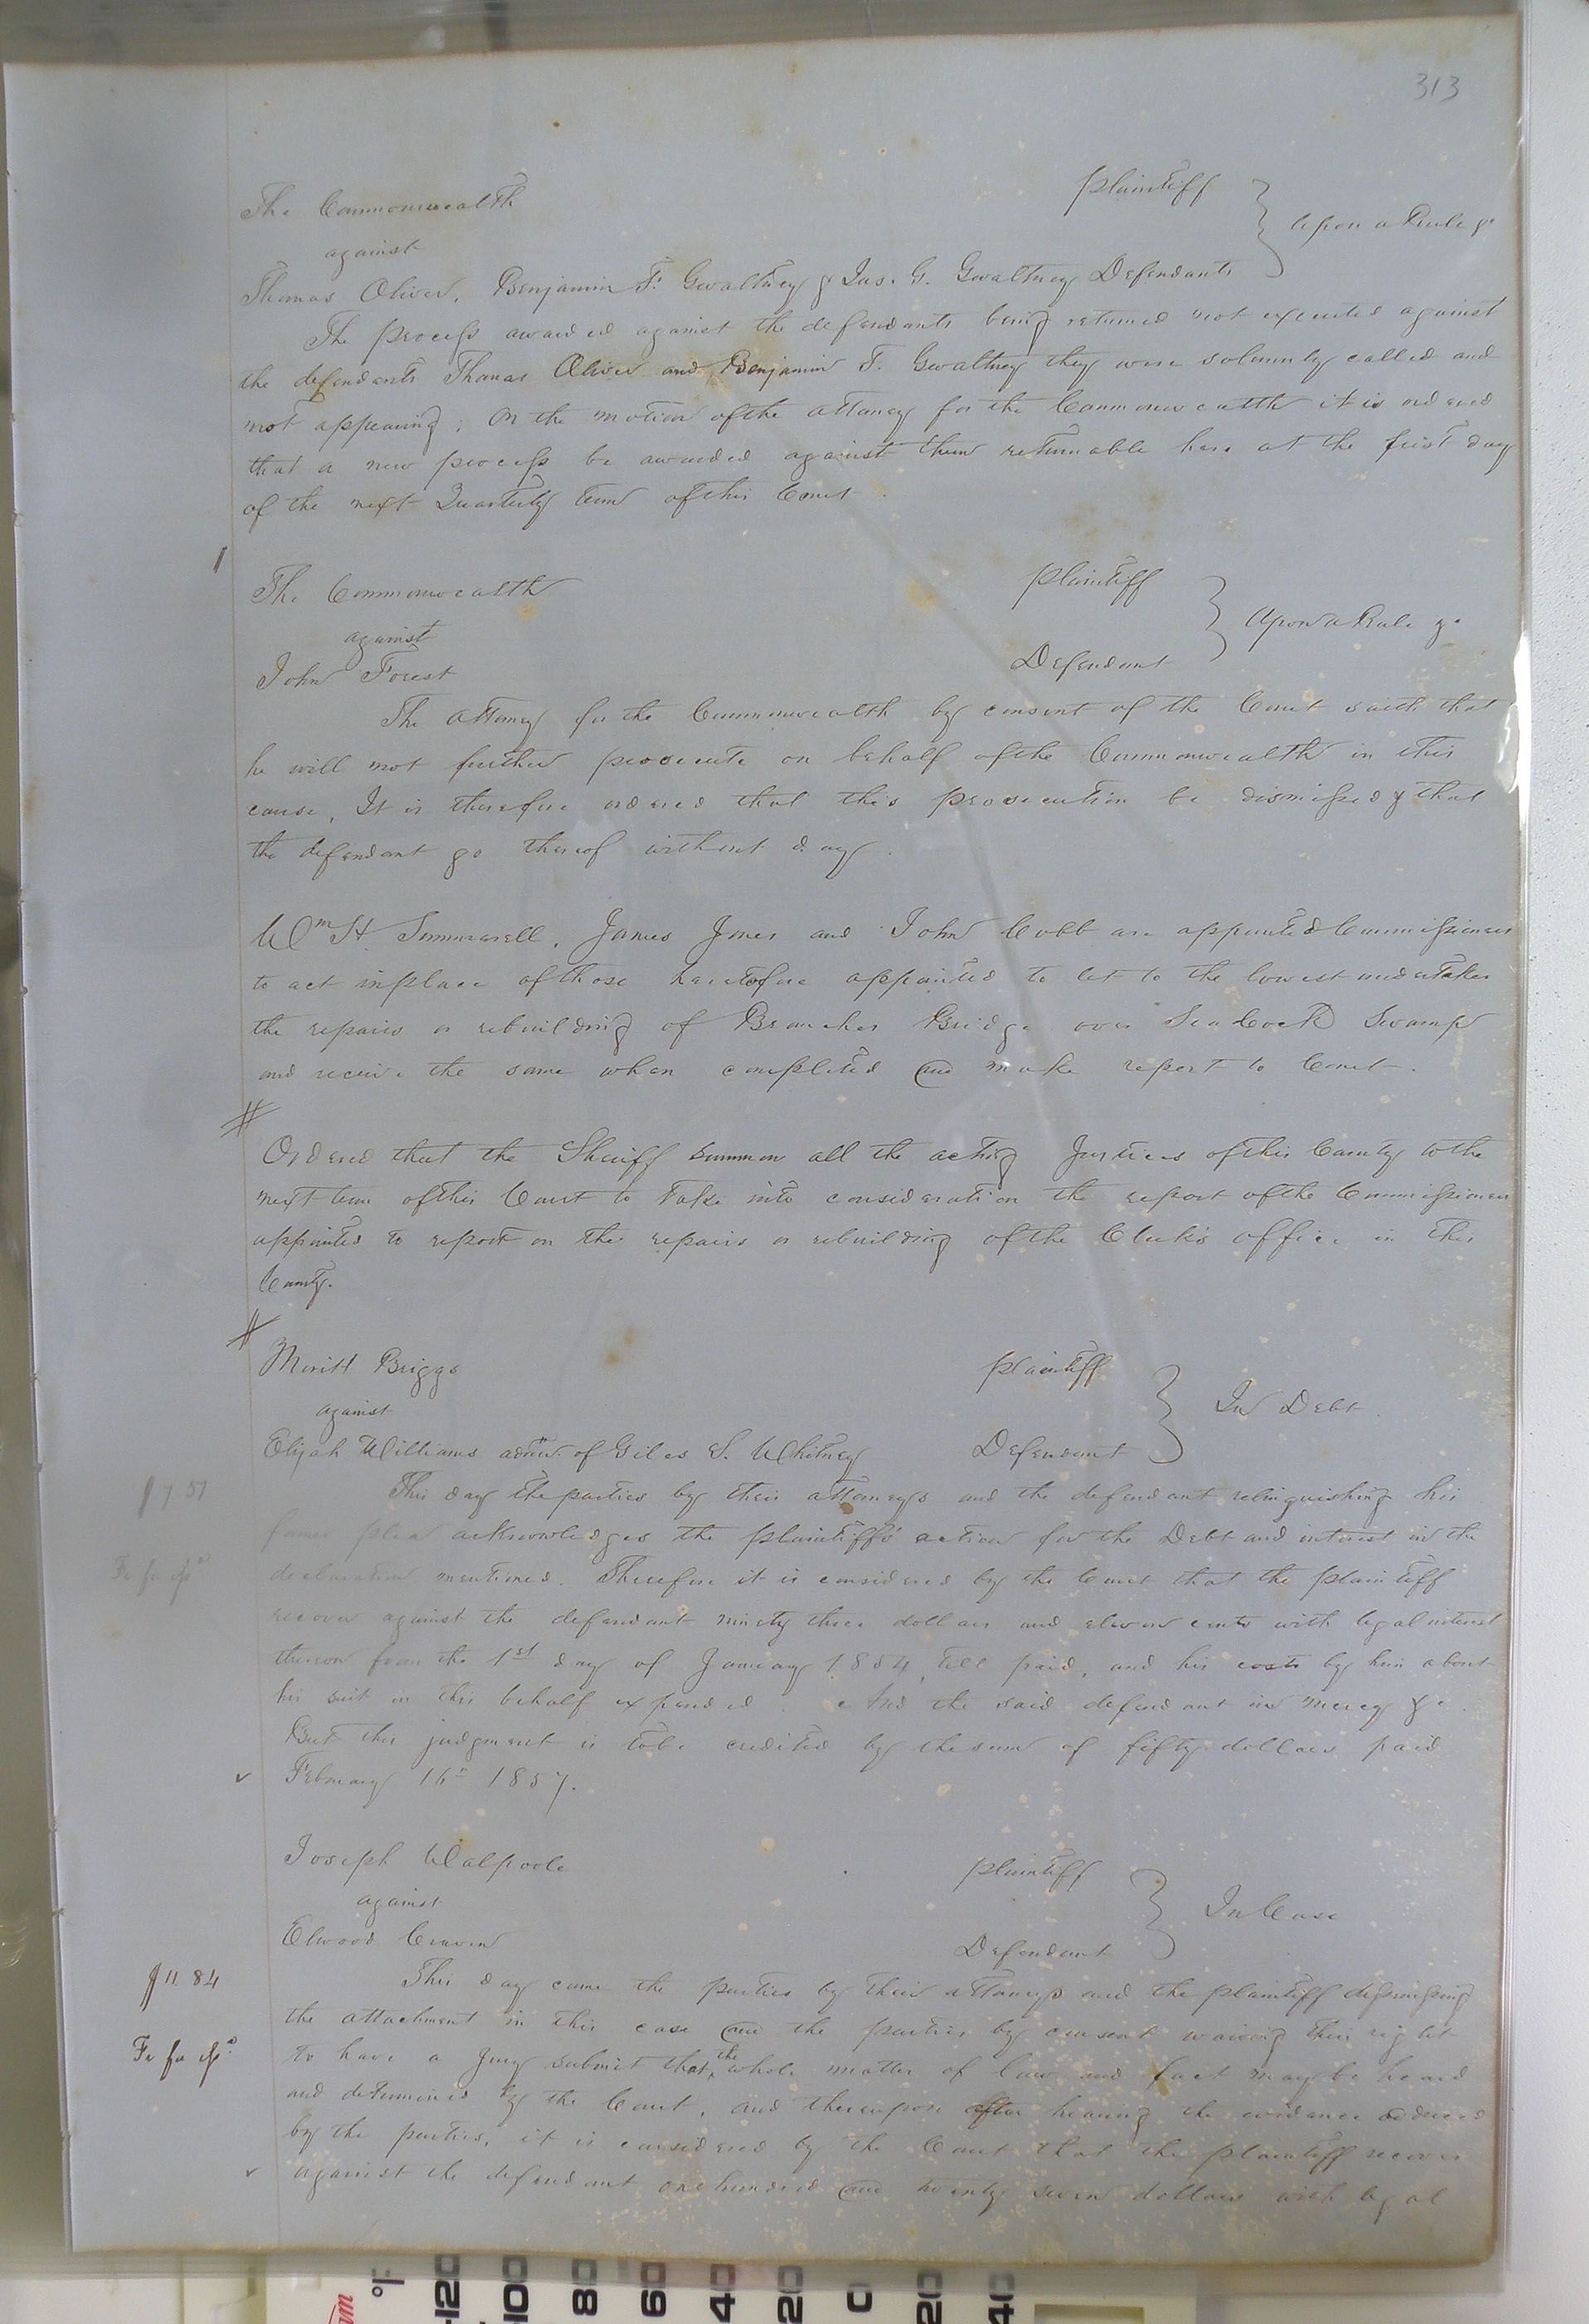 313
The Commonwealth Plaintiff
against Upon a Rule &c
Thomas Oliver, Benjamin F. Gwaltney & Jas. G. Gwaltney Defendants
The process awarded against the defendants being returned not executed against
the defendants Thomas Oliver and Benjamin F. Gwaltney they were solemnly called and
not appearing; On the motion of the attorney for the Commonwealth it is ordered
that a new process be awarded against them returnable here at the first day
of the next Quarterly term of this Court.
The Commonwealth Plaintiff
against Upon a Rule &c
John Forest Defendant
The attorney for the Commonwealth by consent of the Court saith that
he will not further prosecute on behalf of the Commonwealth in this
cause, It is therefore ordered that this prosecution be dismissed & that
the defendant go thereof without day.
Wm H. Summerell, James Jones and John Cobb are appointed Commissioners
to act in place of those heretofore appointed to let to the lowest undertaker
the repairs or rebuilding of Branches Bridge over Seacock Swamp
and receive the same when completed and make report to Court.
Ordered that the Sheriff summon all the acting Justices of this County to the
next term of this Court to take into consideration the report of the Commissioners
appointed to report on the repairs or rebuilding of the Clerk's office in this
County.
Meritt Briggs Plaintiff
against In Debt
Elijah Williams admr. of Giles S. Whitney Defendant
This day the parties by their attorneys and the defendant relinquishing his
$7.51
former plea acknowledges the plaintiff's action for the Debt and interest in the
Fi fa
declaration mentioned. Therefore it is considered by the Court that the plaintiff
recover against the defendant ninety three dollars and eleven cents with legal interest
thereon from the 1st day of January 1854 till paid, and his costs by him about
his suit in this behalf expended. And the said defendant in mercy &c.
But this judgment is to be credited by the sum of fifty dollars paid
February 16" 1857.
Joseph Walpoole Plaintiff
against In Case
Elwood Craven Defendant
$11.84
This day came the parties by their attorneys and the plaintiff dismissing
the attachment in this case and the parties by consent waiving their right
Fi fa
to have a Jury submit that the whole matter of law and fact may be heard
and determined by the Court, and thereupon after hearing the evidence adduced
by the parties, it is considered by the Court that the plaintiff recover
against the defendant one hundred and twenty seven dollars with legal
°F
120
100
80
60
40
20
0
20
40